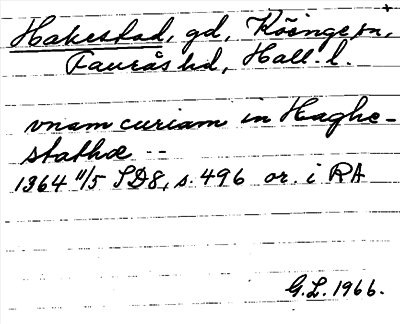 Hakestad, gd, Köinge sn,
Faurås hd, Hall. l.
vnam curiam in Haghe-
stathæ --
1364 11/5 SD8, s. 496 or. i RA
G.L. 1966.